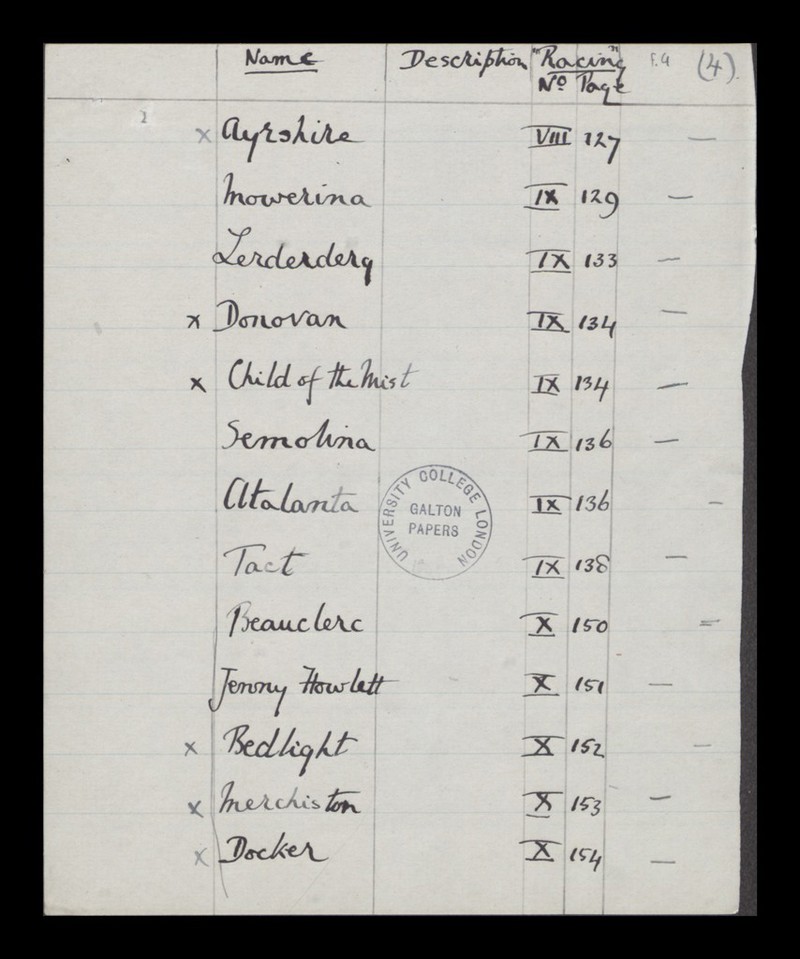 Name Description "Racing" F.4 (4)
No Page
x Ayrshire VIII 127 —
Mowerina IX 129 —
Lerderderg IX 133 —
x Donovan IX 134 —
x Child of the Mist IX 134 —
Semolina IX 136 —
Atalanta IX 136 —
UNIVERSITY COLLEGE LONDON
GALTON
PAPERS
Tact IX 138 —
Beauclerc X 150 =
Jenny Howlett X 151 —
x Bedlight X 152 —
x Merchiston X 153 —
x Docker X 154 —